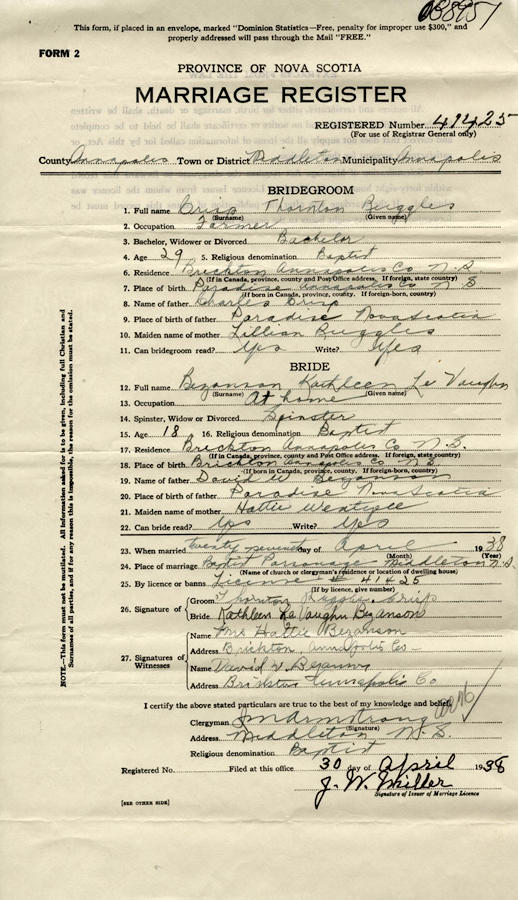 This form, if placed in an envelope, marked "Dominion Statistics—Free, penalty for improper use $300," and
properly addressed will pass through the Mail "FREE."
FORM 2
PROVINCE OF NOVA SCOTIA
MARRIAGE REGISTER
REGISTERED Number 41425
(For use of Registrar General only)
County Annapolis Town or District Middleton Municipality Annapolis
BRIDEGROOM
1. Full name Crisp Thornton Ruggles
(Surname) (Given name)
2. Occupation Farmer
3. Bachelor, Widower or Divorced Bachelor
4. Age 29 5. Religious denomination Baptist
6. Residence Brickton Annapolis Co N.S.
(If in Canada, province, county and Post Office address. If foreign, state country)
7. Place of birth Paradise Annapolis Co N S
(If born in Canada, province, county. If foreign-born, country)
8. Name of father Charles Crisp
9. Place of birth of father Paradise Nova Scotia
10. Maiden name of mother Lillian Ruggles
11. Can bridegroom read? Yes Write? Yes
BRIDE
12. Full name Bezanson Kathleen Le Vaughn
(Surname) (Given name)
13. Occupation At home
14. Spinster, Widow or Divorced Spinster
15. Age 18 16. Religious denomination Baptist
17. Residence Brickton Annapolis Co N.S.
(If in Canada, province, county and Post Office address. If foreign, state country)
18. Place of birth Brickton Annapolis Co N S
(If born in Canada, province, county. If foreign-born, country)
19. Name of father David W Bezanson
20. Place of birth of father Paradise Nova Scotia
21. Maiden name of mother Hattie
22. Can bride read? Yes Write? Yes
23. When married twenty seventh day of April 1938
(Month) (Year)
24. Place of marriage Baptist Parsonage Middleton N.S.
(Name of church or clergyman's residence or location of dwelling house)
25. By licence or banns License # 41425
(If by licence, give number)
26. Signature of
Groom Thornton Ruggles Crisp
Bride Kathleen Le Vaughn Bezanson
27. Signatures of Witnesses
Name Mrs Hattie Bezanson
Address Brickton, Annapolis Co—
Name David Bezanson
Address Brickton Annapolis Co
I certify the above stated particulars are true to the best of my knowledge and belief.
Clergyman Armstrong
(Signature)
Address Middleton N.S.
Religious denomination Baptist
Registered No. Filed at this office 30 day of April 1938
J. W. Miller
Signature of Issuer of Marriage Licence
[SEE OTHER SIDE]
NOTE.—This form must not be mutilated. All information asked for is to be given, including full Christian and
Surnames of all parties, and if for any reason this is impossible, the reason for the omission must be stated.